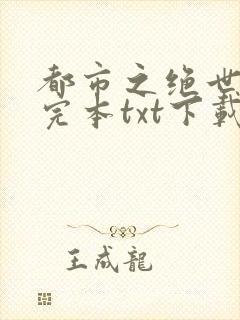 都市之绝世
完本txt下载
王成龍